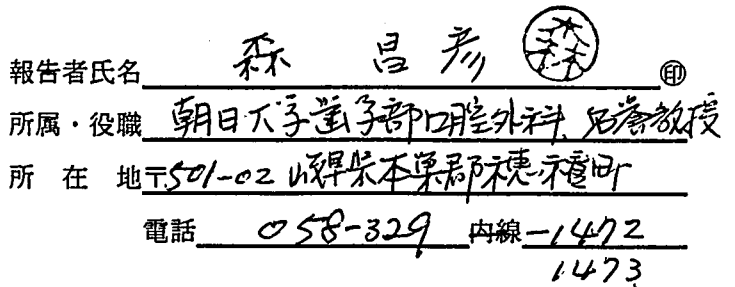 報告者氏名 森 昌彦 森 ㊞
所属・役職 朝日大学歯学部口腔外科、名誉教授
所在地 〒501-02 岐阜県本巣郡穂積町
電話 058-329 内線 -1472
1473